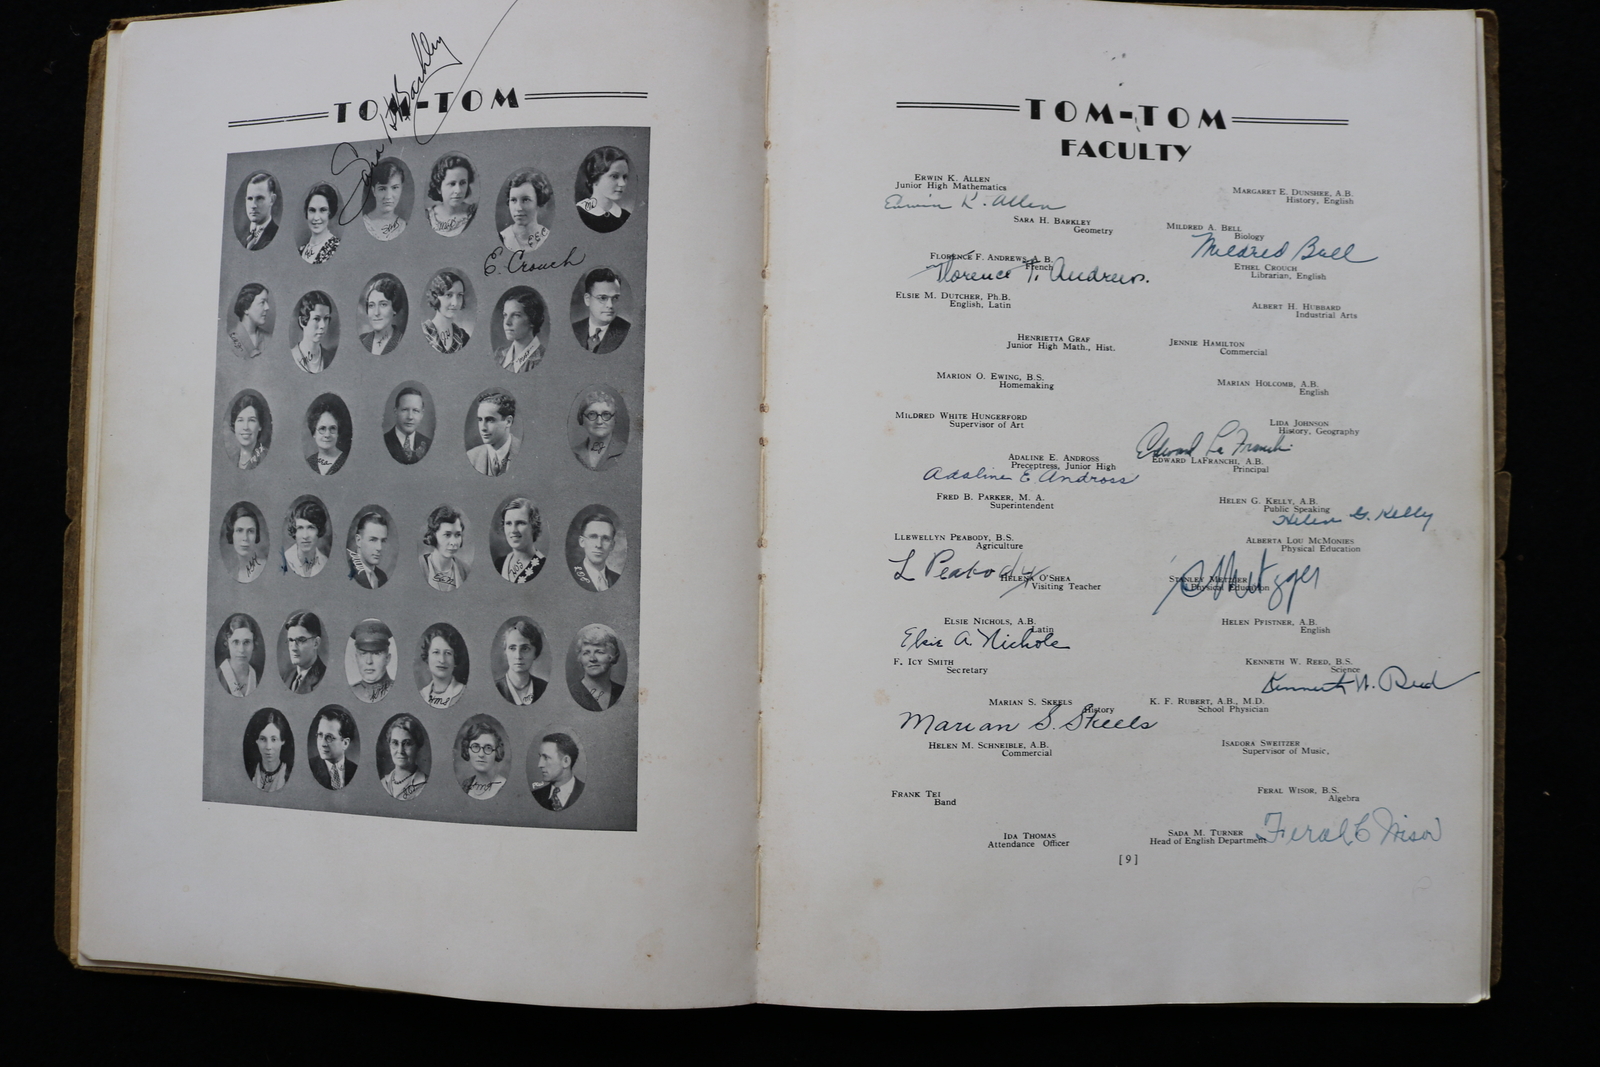 Sara H. Barkley
TOM-TOM
E. Crouch
TOM-TOM
FACULTY
ERWIN K. ALLEN
Junior High Mathematics
Erwin K. Allen
SARA H. BARKLEY
Geometry
FLORENCE F. ANDREWS, A. B.
French
Florence F. Andrews.
ELSIE M. DUTCHER, Ph.B.
English, Latin
HENRIETTA GRAF
Junior High Math., Hist.
MARION O. EWING, B.S.
Homemaking
MILDRED WHITE HUNGERFORD
Supervisor of Art
ADALINE E. ANDROSS
Preceptress, Junior High
Adaline E Andross
FRED B. PARKER, M. A.
Superintendent
LLEWELLYN PEABODY, B.S.
Agriculture
L Peabody
HELENA O'SHEA
Visiting Teacher
ELSIE NICHOLS, A.B.
Latin
Elsie A. Nichols
F. ICY SMITH
Secretary
MARIAN S. SKEELS
History
Marian S. Skeels
HELEN M. SCHNEIBLE, A.B.
Commercial
FRANK TEI
Band
IDA THOMAS
Attendance Officer
MARGARET E. DUNSHEE, A.B.
History, English
MILDRED A. BELL
Biology
Mildred Bell
ETHEL CROUCH
Librarian, English
ALBERT H. HUBBARD
Industrial Arts
JENNIE HAMILTON
Commercial
MARIAN HOLCOMB, A.B.
English
LIDA JOHNSON
History, Geography
Edward La Franchi
EDWARD LAFRANCHI, A.B.
Principal
HELEN G. KELLY, A.B.
Public Speaking
Helen G. Kelly
ALBERTA LOU MCMONIES
Physical Education
STANLEY METZGER
Physical Education
S Metzger
HELEN PFISTNER, A.B.
English
KENNETH W. REED, B.S.
Science
Kenneth W. Reed
K. F. RUBERT, A.B., M.D.
School Physician
ISADORA SWEITZER
Supervisor of Music,
FERAL WISOR, B.S.
Algebra
SADA M. TURNER
Head of English Department
Feral C Wisor
[9]